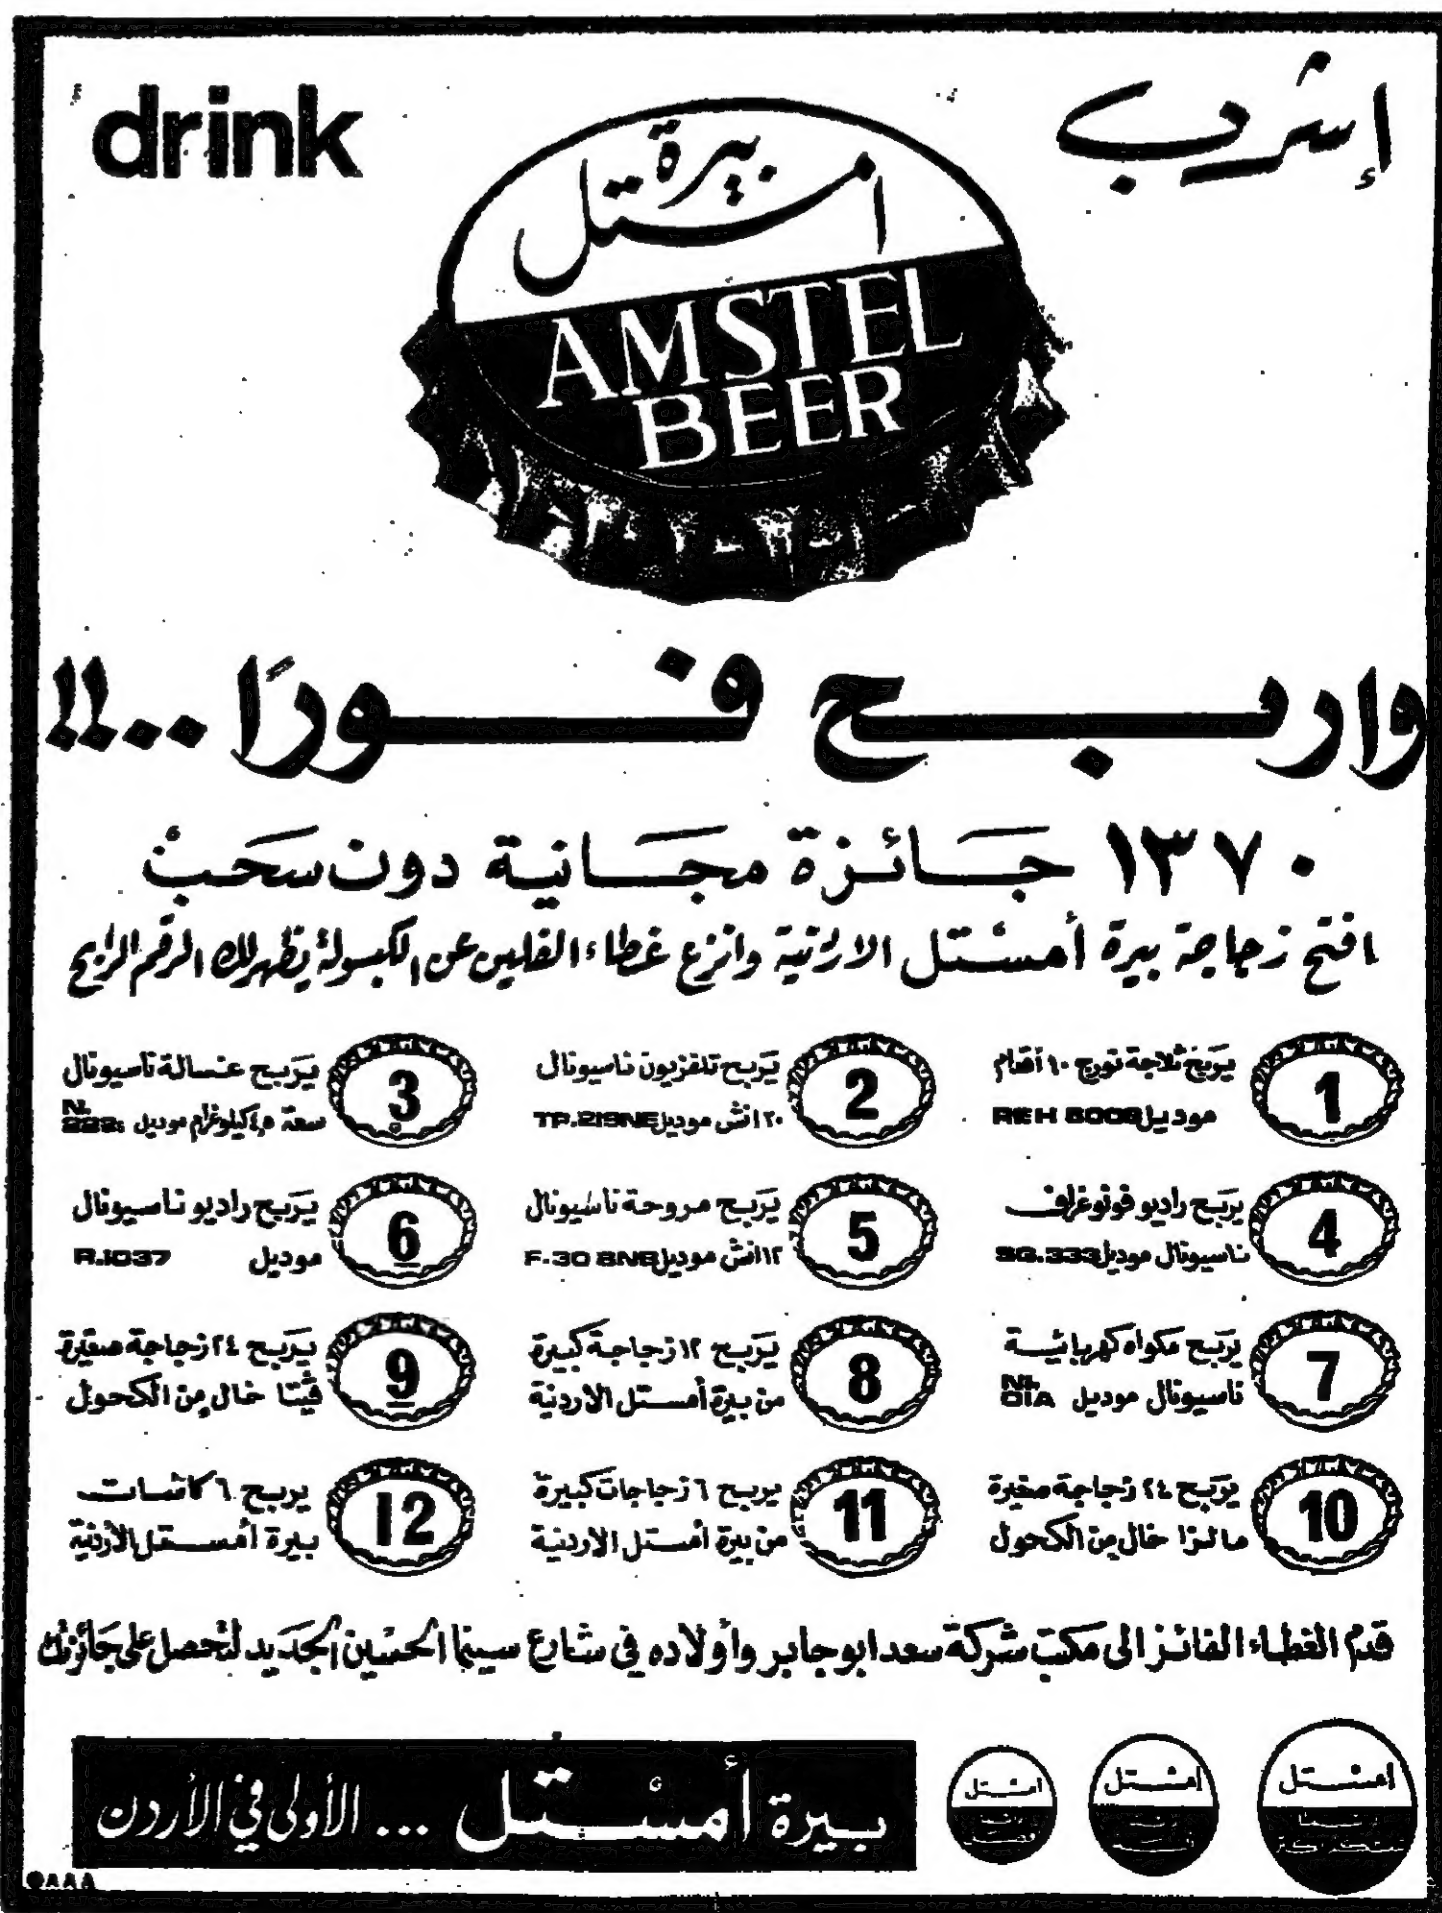 إشرب
drink
بيرة
امستل
AMSTEL
BEER
واربح فورًا ..!!
١٣٧٠ جائزة مجانية دون سحب
افتح زجاجة بيرة أمستل الاردنية وانزع غطاء الفلين عن الكبسولة يظهر لك الرقم الرابح
1
يربح ثلاجة نورج ١٠ أقدام
موديل
2
يربح تلفزيون ناسيونال
٢٠ انش موديل TP.219NE
3
يربح غسالة ناسيونال
سعة ٤٫٥ كيلوغرام موديل N. 222
4
يربح راديو فونوغراف
ناسيونال موديل SG.333
5
يربح مروحة ناسيونال
١٢ انش موديل F-30 BNB
6
يربح راديو ناسيونال
موديل R.1037
7
يربح مكواه كهربائية
ناسيونال موديل NI. 01A
8
يربح ١٢ زجاجة كبيرة
من بيرة أمستل الاردنية
9
يربح ٢٤ زجاجة صغيرة
ڤيتا خال من الكحول
10
يربح ٢٤ زجاجة صغيرة
مالزا خال من الكحول
11
يربح ٦ زجاجات كبيرة
من بيرة أمستل الاردنية
12
يربح ٦ كاسات
بيرة أمستل الأردنية
قدم الغطاء الفائز الى مكتب شركة سعد ابو جابر وأولاده في شارع سينما الحسين الجديد لتحصل على جائزتك
أمستل
أمستل
أمستل
بيرة أمستل ... الأولى في الأردن